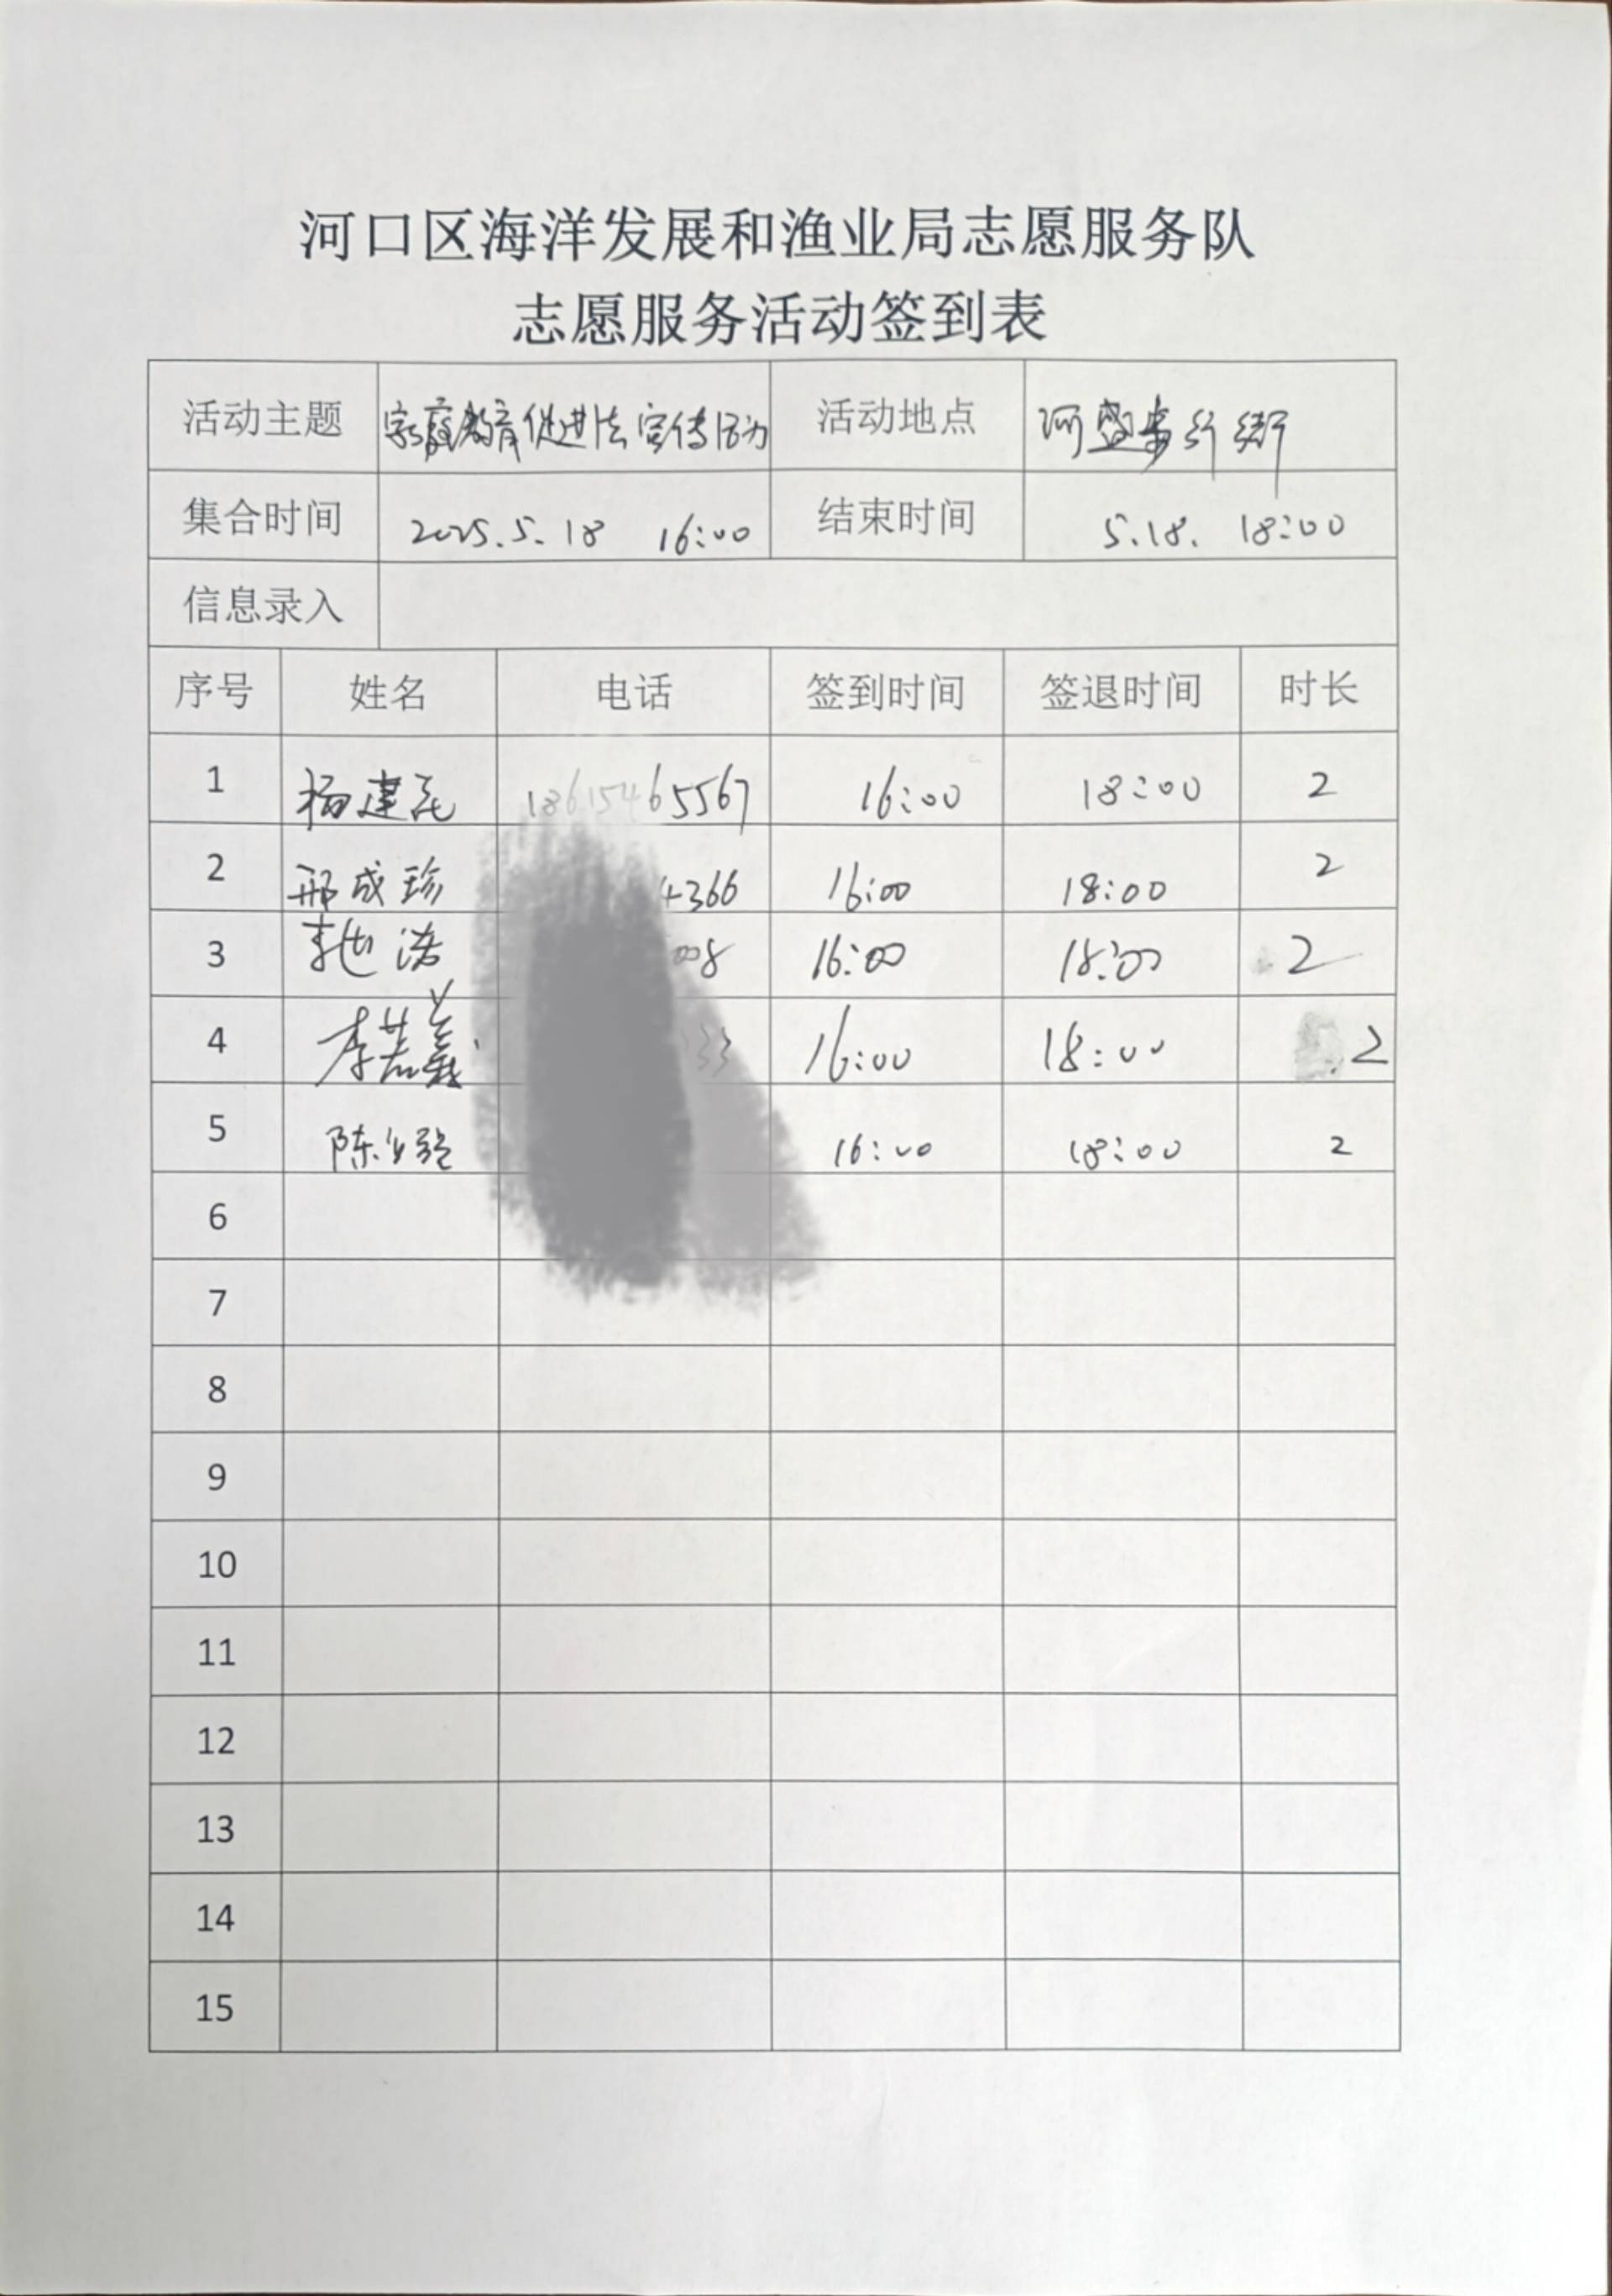 河口区海洋发展和渔业局志愿服务队
志愿服务活动签到表
活动主题 家庭教育促进法宣传活动 活动地点 河盛步行街
集合时间 2025.5.18 16:00 结束时间 5.18. 18:00
信息录入
序号 姓名 电话 签到时间 签退时间 时长
1 杨建 18615465567 16:00 18:00 2
2 邢成珍 4366 16:00 18:00 2
3 008 16:00 18:00 2
4 李若羲 33 16:00 18:00 2
5 陈 16:00 18:00 2
6
7
8
9
10
11
12
13
14
15